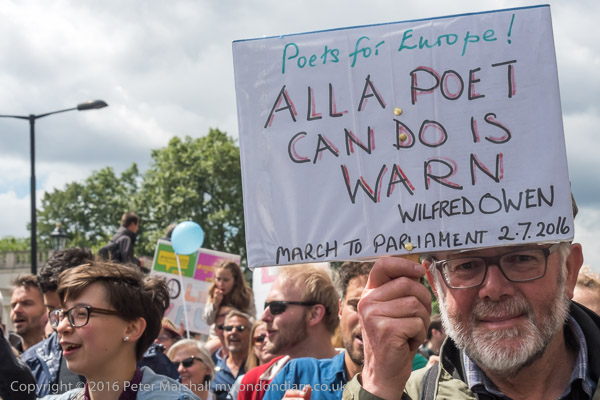 Poets for Europe!
ALL A POET
CAN DO IS
WARN
WILFRED OWEN
MARCH TO PARLIAMENT 2.7.2016
Copyright © 2016 Peter Marshall mylondondiary.co.uk